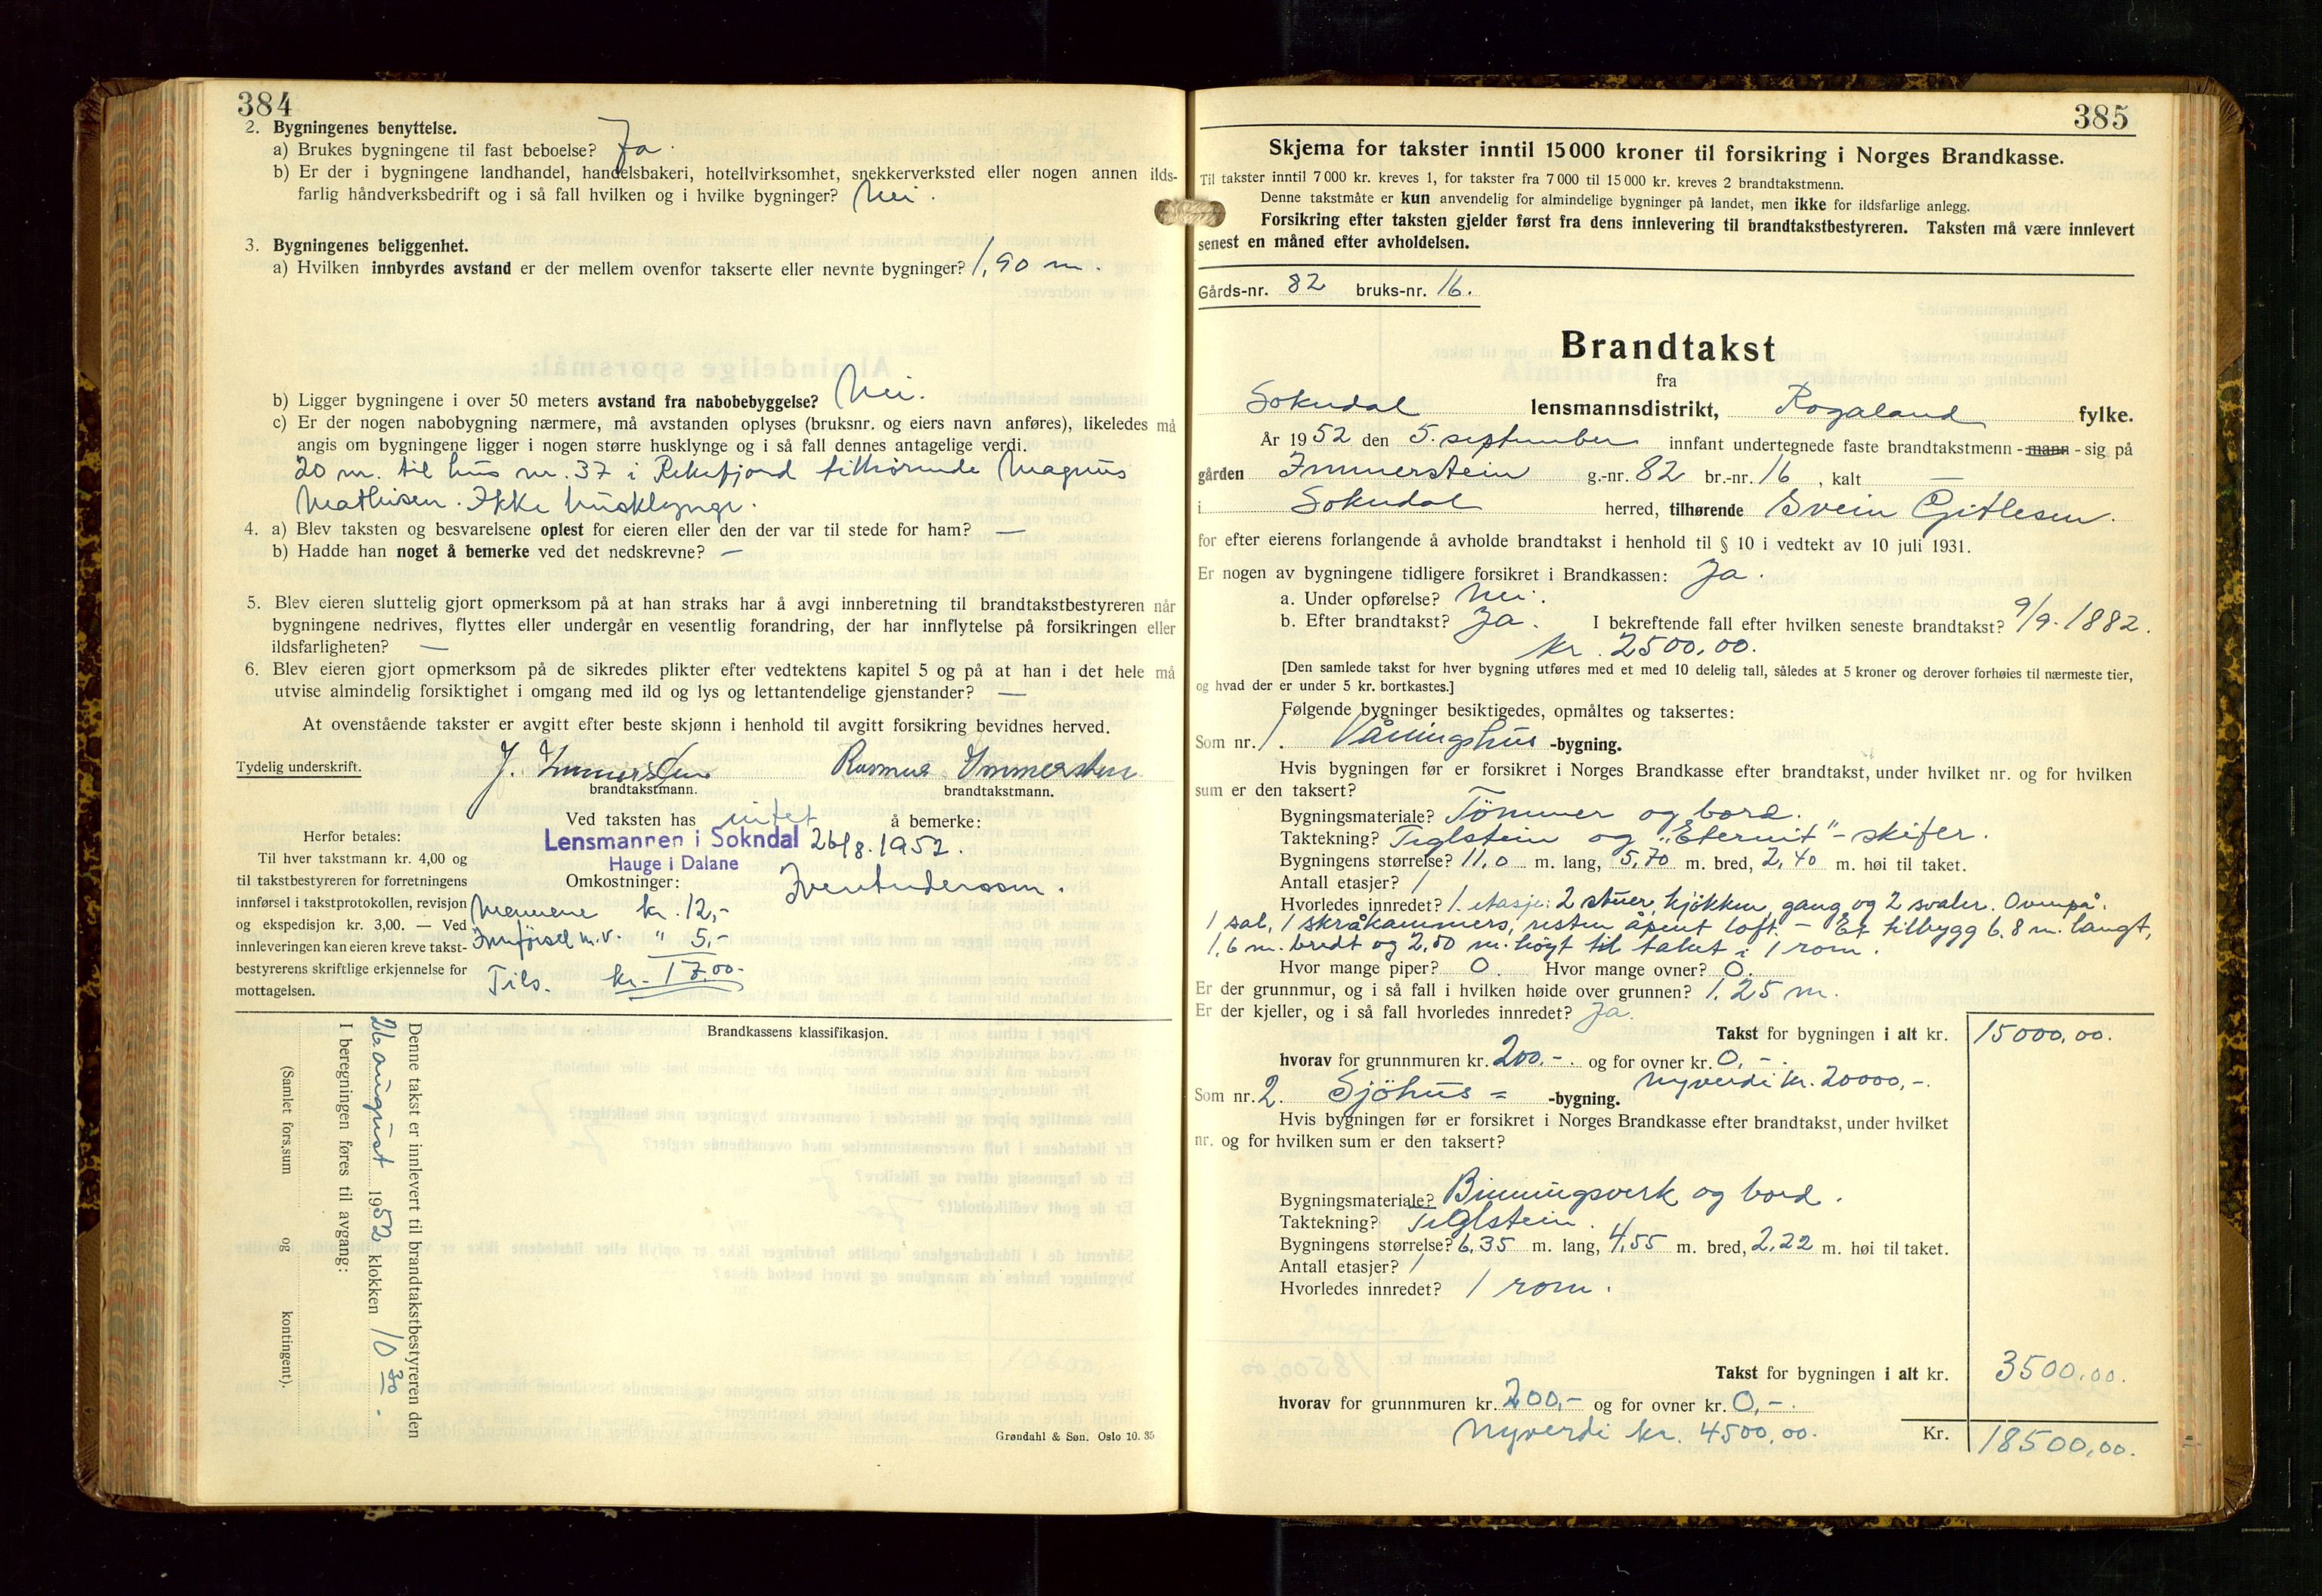 384
2. Bygningenes benyttelse.
a) Brukes bygningene til fast beboelse? Ja.
b) Er der i bygningene landhandel, handelsbakeri, hotellvirksomhet, snekkerverksted eller nogen annen ilds-
farlig håndverksbedrift og i så fall hvilken og i hvilke bygninger? Nei.
3. Bygningenes beliggenhet.
a) Hvilken innbyrdes avstand er der mellem ovenfor takserte eller nevnte bygninger? 1,90 m.
b) Ligger bygningene i over 50 meters avstand fra nabobebyggelse? Nei.
c) Er der nogen nabobygning nærmere, må avstanden oplyses (bruksnr. og eiers navn anføres), likeledes må
angis om bygningene ligger i nogen større husklynge og i så fall dennes antagelige verdi.
20 m. til hus nr. 37 i Rekefjord tilhörende Magnus
Mathisen. Ikke husklynge.
4. a) Blev taksten og besvarelsene oplest for eieren eller den der var til stede for ham? —
b) Hadde han noget å bemerke ved det nedskrevne? —
5. Blev eieren sluttelig gjort opmerksom på at han straks har å avgi innberetning til brandtakstbestyreren når
bygningene nedrives, flyttes eller undergår en vesentlig forandring, der har innflytelse på forsikringen eller
ildsfarligheten? —
6. Blev eieren gjort opmerksom på de sikredes plikter efter vedtektens kapitel 5 og på at han i det hele må
utvise almindelig forsiktighet i omgang med ild og lys og lettantendelige gjenstander? —
At ovenstående takster er avgitt efter beste skjønn i henhold til avgitt forsikring bevidnes herved.
Tydelig underskrift. J. Immerstein Rasmus Immerstein
brandtakstmann. brandtakstmann.
Ved taksten has intet å bemerke:
Lensmannen i Sokndal 26/8.1952.
Hauge i Dalane
Omkostninger:
Mennene kr. 12,-
Innförsel m.v. " 5,-
Tils. kr. 17.00-
Herfor betales:
Til hver takstmann kr. 4,00 og
til takstbestyreren for forretningens
innførsel i takstprotokollen, revisjon
og ekspedisjon kr. 3,00. — Ved
innleveringen kan eieren kreve takst-
bestyrerens skriftlige erkjennelse for
mottagelsen.
Brandkassens klassifikasjon.
Denne takst er innlevert til brandtakstbestyreren den
26. august 1952 klokken 10 30.
I beregningen føres til avgang:
(Samlet fors.sum og kontingent).
Grøndahl & Søn. Oslo 10. 35
385
Skjema for takster inntil 15 000 kroner til forsikring i Norges Brandkasse.
Til takster inntil 7 000 kr. kreves 1, for takster fra 7 000 til 15 000 kr. kreves 2 brandtakstmenn.
Denne takstmåte er kun anvendelig for almindelige bygninger på landet, men ikke for ildsfarlige anlegg.
Forsikring efter taksten gjelder først fra dens innlevering til brandtakstbestyreren. Taksten må være innlevert
senest en måned efter avholdelsen.
Gårds-nr. 82 bruks-nr. 16.
Brandtakst
fra
Sokndal lensmannsdistrikt, Rogaland fylke.
År 1952 den 5. september innfant undertegnede faste brandtakstmenn - mann - sig på
gården Immerstein g.-nr. 82 br.-nr. 16, kalt —
i Sokndal herred, tilhørende Svein Gitlesen.
for efter eierens forlangende å avholde brandtakst i henhold til § 10 i vedtekt av 10 juli 1931.
Er nogen av bygningene tidligere forsikret i Brandkassen: Ja.
a. Under opførelse? Nei.
b. Efter brandtakst? Ja. I bekreftende fall efter hvilken seneste brandtakst? 9/9.1882.
kr. 2500,00.
[Den samlede takst for hver bygning utføres med et med 10 delelig tall, således at 5 kroner og derover forhøies til nærmeste tier,
og hvad der er under 5 kr. bortkastes.]
Følgende bygninger besiktigedes, opmåltes og taksertes:
Som nr. 1. Våningshus -bygning.
Hvis bygningen før er forsikret i Norges Brandkasse efter brandtakst, under hvilket nr. og for hvilken
sum er den taksert?
Bygningsmateriale? Tömmer og bord.
Taktekning? Teglstein og "Eternit"-skifer.
Bygningens størrelse? 11,0 m. lang, 5,70 m. bred, 2,40 m. høi til taket.
Antall etasjer? 1
Hvorledes innredet? 1. etasje: 2 stuer, kjökken, gang og 2 svaler. Ovenpå:
1 sal, 1 skråkammers, resten åpent loft. – Et tilbygg 6.8 m. langt,
1,6 m. bredt og 2,80 m. höyt til taket i 1 rom.
Hvor mange piper? 0. Hvor mange ovner? 0.
Er der grunnmur, og i så fall i hvilken høide over grunnen? 1.25 m.
Er der kjeller, og i så fall hvorledes innredet? Ja.
Takst for bygningen i alt kr. 15000,00.
hvorav for grunnmuren kr. 200.- og for ovner kr. 0,-.
nyverdi kr. 20000,-.
Som nr. 2. Sjöhus = -bygning.
Hvis bygningen før er forsikret i Norges Brandkasse efter brandtakst, under hvilket
nr. og for hvilken sum er den taksert?
Bygningsmateriale? Binningsverk og bord.
Taktekning? Teglstein.
Bygningens størrelse? 6,35 m. lang, 4,55 m. bred, 2,22 m. høi til taket.
Antall etasjer? 1
Hvorledes innredet? 1 rom.
Takst for bygningen i alt kr. 3500,00.
hvorav for grunnmuren kr. 200,- og for ovner kr. 0,-.
Nyverdi kr. 4500,00. Kr. 18500,00.